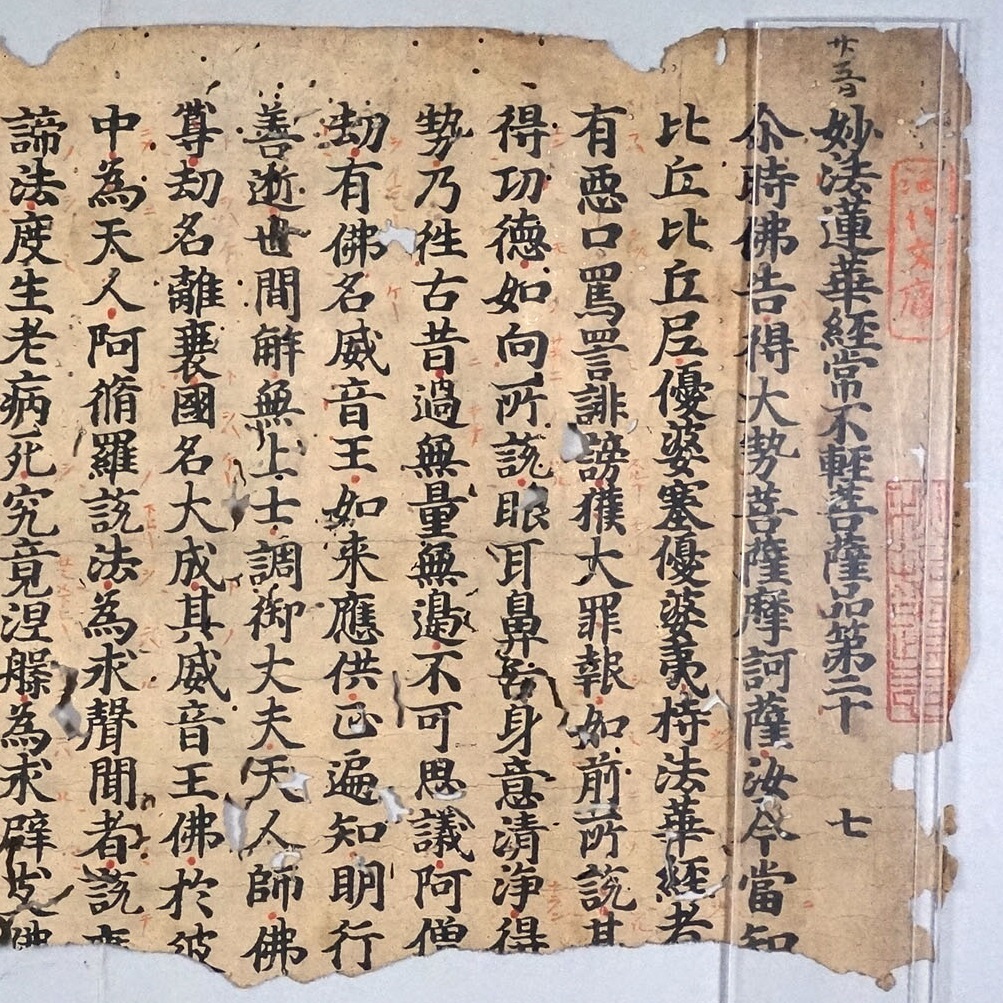 廿五
妙法蓮華經常不輕菩薩品第二十 七
尒時佛告得大勢菩薩摩訶薩汝今當知
比丘比丘尼優婆塞優婆夷持法華經者
有惡口罵詈誹謗獲大罪報如前所說其
得功德如向所說眼耳鼻舌身意清淨得
勢乃往古昔過無量無邊不可思議阿僧
劫有佛名威音王如來應供正遍知明行
善逝世間解無上士調御丈夫天人師佛
尊劫名離衰國名大成其威音王佛於彼
中為天人阿脩羅說法為求聲聞者說應
諦法度生老病死究竟涅槃為求辟支佛